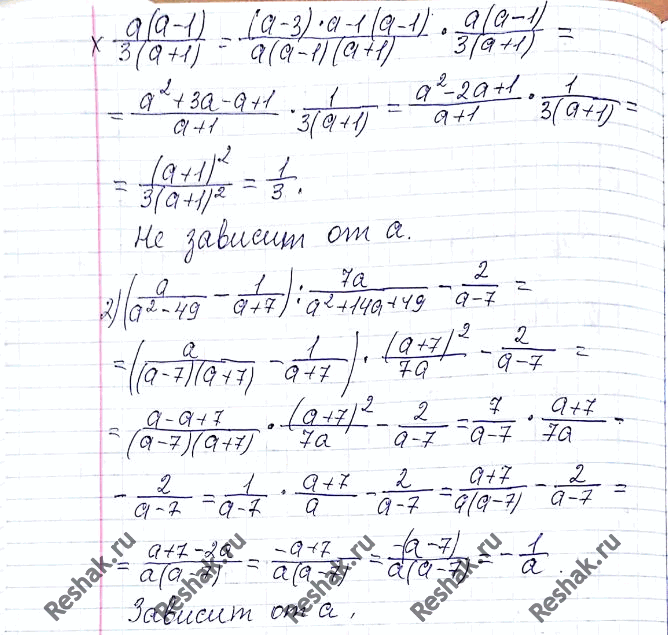 × a(a-1)/3(a+1) = (a-3)·a-1(a-1)/a(a-1)(a+1) · a(a-1)/3(a+1) =
= a²+3a-a+1/a+1 · 1/3(a+1) = a²-2a+1/a+1 · 1/3(a+1) =
= (a+1)²/3(a+1)² = 1/3.
Не зависит от a.
2) (a/a²-49 - 1/a+7) : 7a/a²+14a+49 - 2/a-7 =
= (a/(a-7)(a+7) - 1/a+7) · (a+7)²/7a - 2/a-7 =
= a-a+7/(a-7)(a+7) · (a+7)²/7a - 2/a-7 = 7/a-7 · a+7/7a -
- 2/a-7 = 1/a-7 · a+7/a - 2/a-7 = a+7/a(a-7) - 2/a-7 =
= a+7-2a/a(a-7) = -a+7/a(a-7) = -(a-7)/a(a-7) = -1/a.
Зависит от a.
Reshak.ru
Reshak.ru
Reshak.ru
Reshak.ru